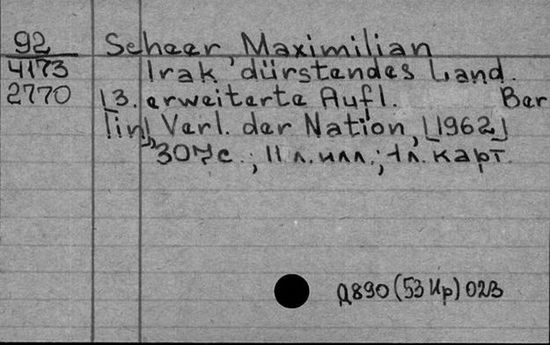 92 Scheer, Maximilian
4173 Irak, dürstendes Land.
2770 [3. erweiterte Aufl. Ber
lin], Verl. der Nation, [1962]
307 с.; 11 л. илл.; 1 л. карт.
Д890(53Ир)023